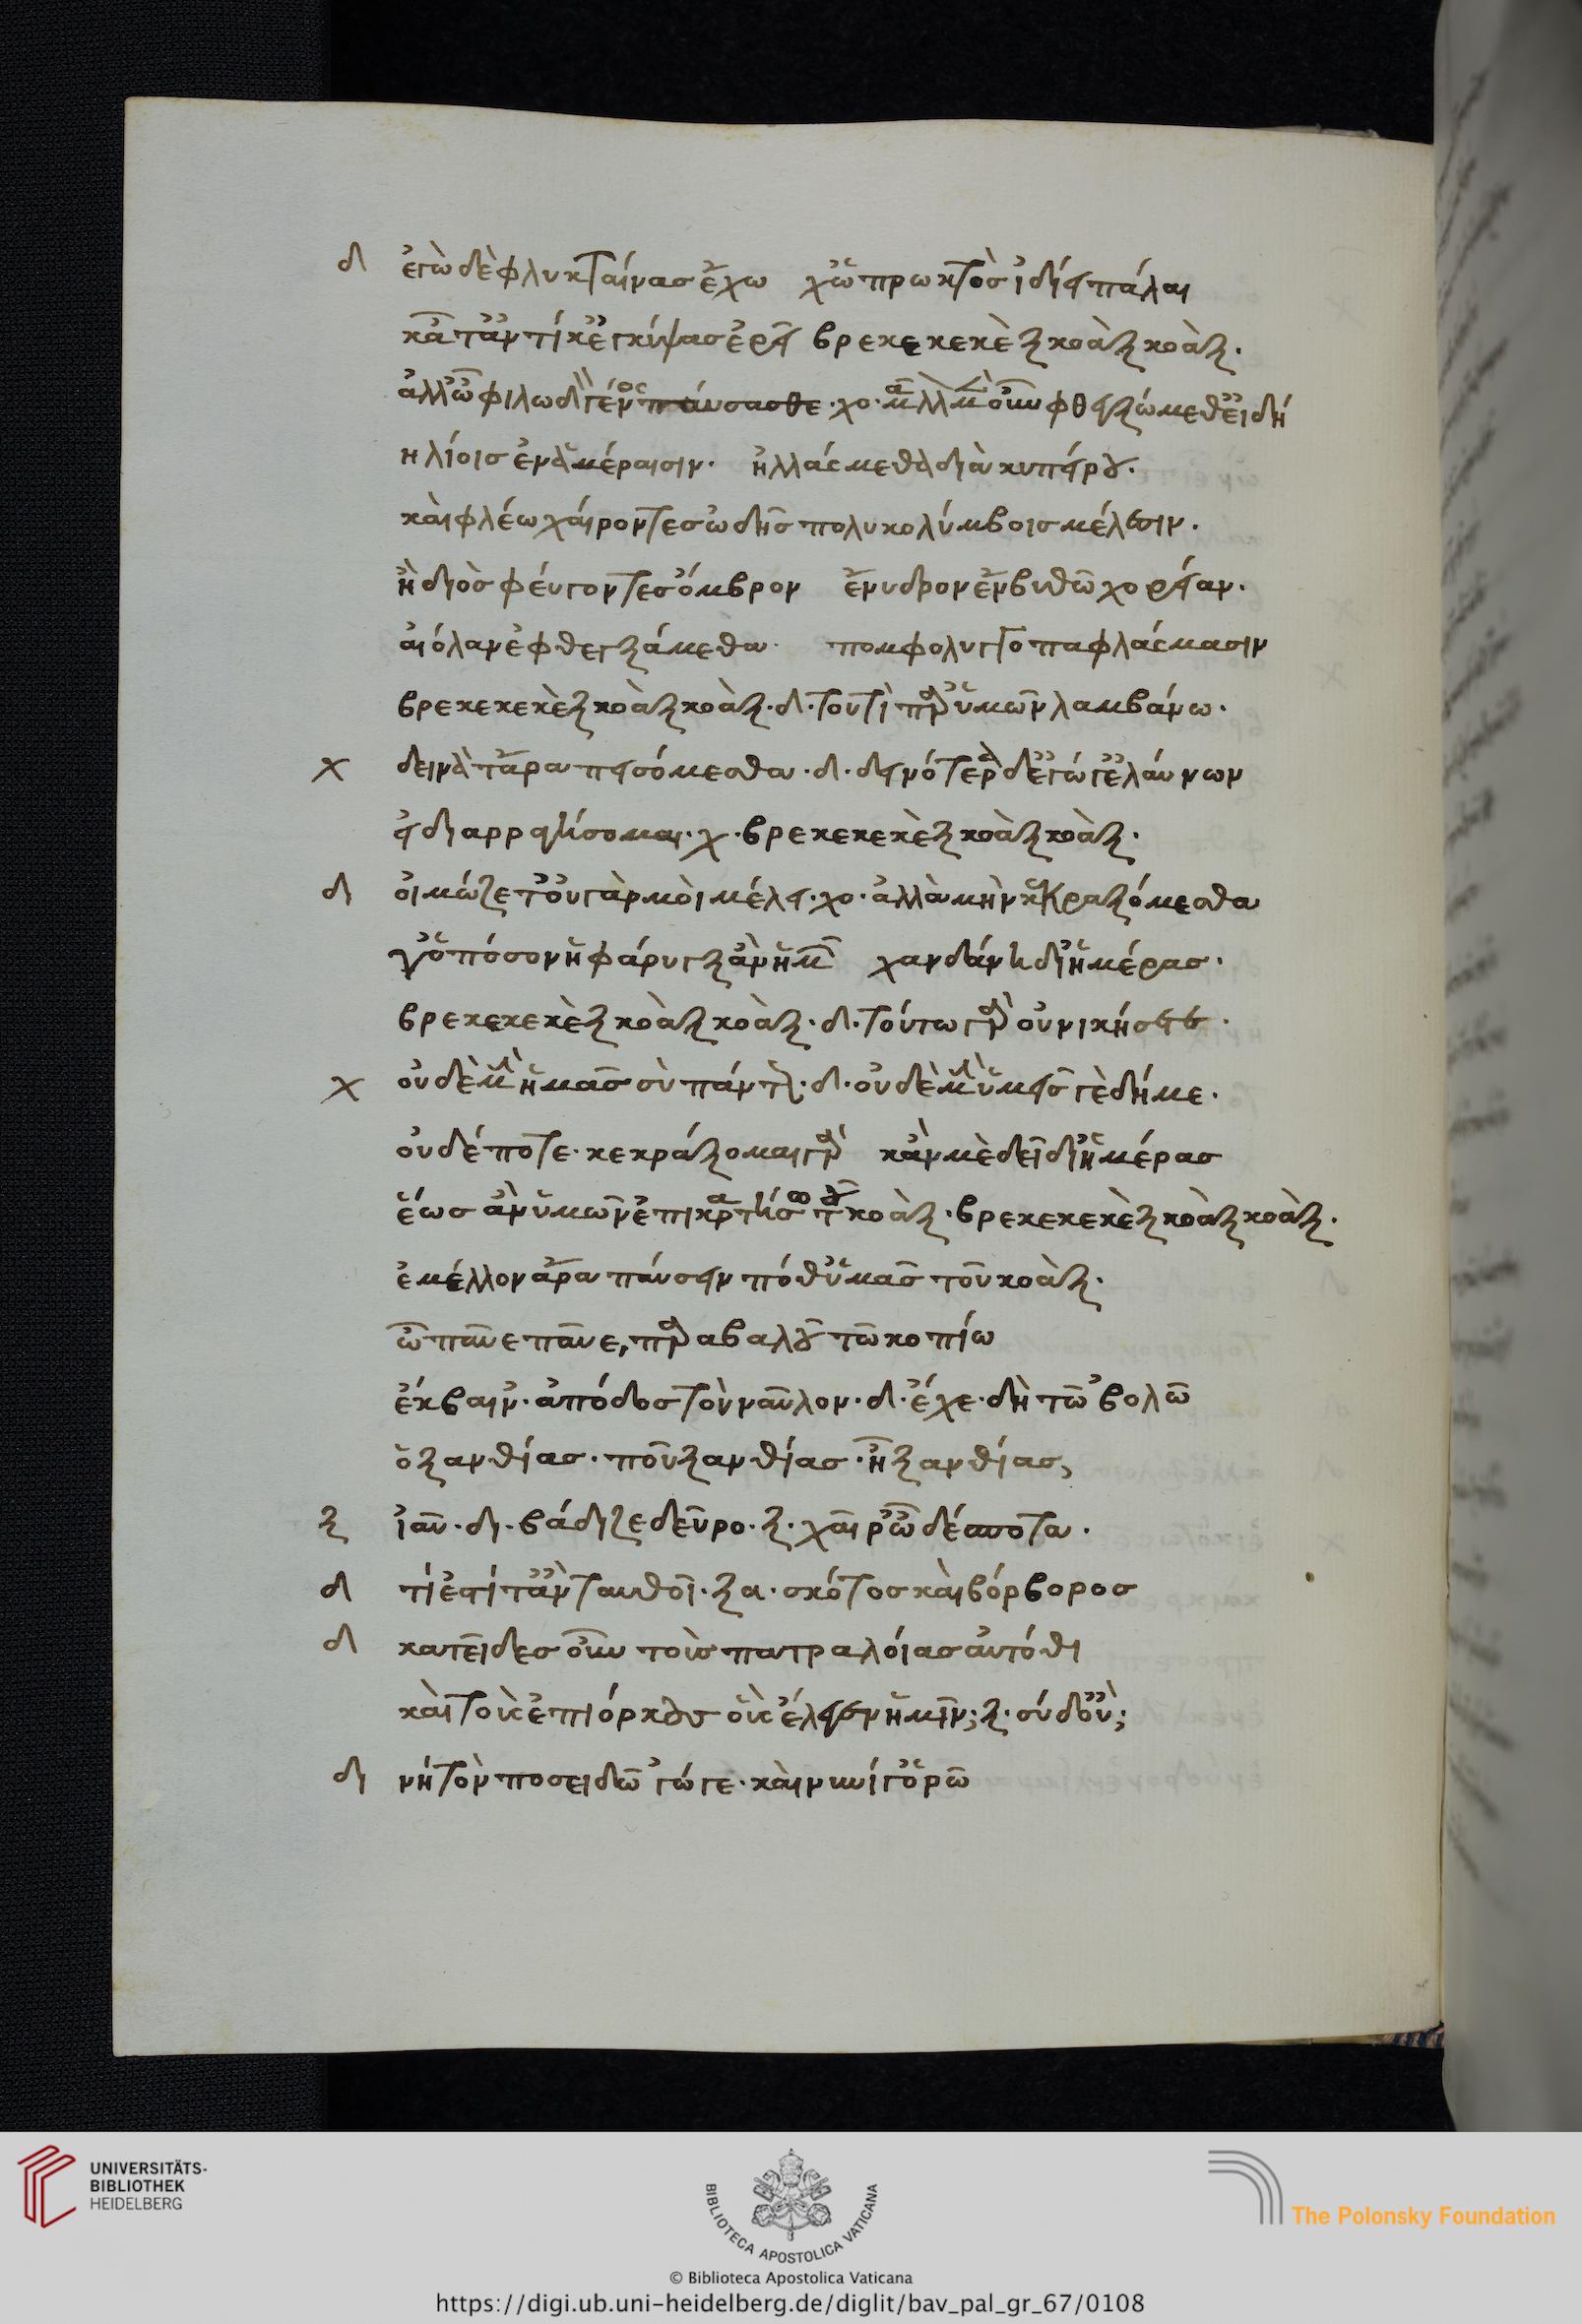 δ ἐγὼ δὲ φλυκταίνας ἔχω χὠ πρωκτὸς ἰδίει πάλαι
κᾆτ' αὐτίκ' ἐγκύψας ἐρεῖ βρεκεκεκὲξ κοὰξ κοὰξ.
ἀλλ' ὦ φιλωδὸν γένος παύσασθε. χο. μᾶλλον μὲν οὖν φθεγξώμεθ' εἰ δή
ἡλίοις ἐν ἁμέραισιν. ἡλλάμεθα διὰ κυπείρου.
καὶ φλέω χαίροντες ὠδῆς πολυκολύμβοις μέλεσιν.
ἢ διὸς φεύγοντες ὄμβρον ἔνυδρον ἐν βυθῷ χορείαν.
αἰόλαν ἐφθεγξάμεθα. πομφολυγοπαφλάσμασιν
βρεκεκεκὲξ κοὰξ κοὰξ. δ. τουτὶ παρ' ὑμῶν λαμβάνω.
χ δεινὰ τἄρα πεισόμεσθα. δ. δεινότερα δ' ἔγωγ' ἐλαύνων
εἰ διαρραγήσομαι. χ. βρεκεκεκὲξ κοὰξ κοὰξ.
δι οἰμώζετ' οὐ γάρ μοι μέλει. χο. ἀλλὰ μὴν κεκραξόμεσθα
γ' ὁπόσον ἡ φάρυγξ ἂν ἡμῶν χανδάνῃ δι' ἡμέρας.
βρεκεκεκὲξ κοὰξ κοὰξ. δ. τούτῳ γὰρ οὐ νικήσετε.
χ οὐδὲ μὴν ἡμᾶς σὺ πάντως. δ. οὐδὲ μὴν ὑμεῖς γε δή με.
οὐδέποτε. κεκράξομαι γὰρ κἄν με δεῖ δι' ἡμέρας
ἕως ἂν ὑμῶν ἐπικρατήσω τοῦ κοὰξ. βρεκεκεκὲξ κοὰξ κοὰξ.
ἔμελλον ἄρα παύσειν πόθ' ὑμᾶς τοῦ κοὰξ.
ὦ παῦε παῦε, παραβαλοῦ τῷ κωπίω
ἔκβαιν'. ἀπόδος τὸν ναῦλον. δ. ἔχε δὴ τὠβολώ
ὁ ξανθίας. ποῦ ξανθίας. ἦ ξανθίας,
ξ ἰαῦ. δι. βάδιζε δεῦρο. ξ. χαῖρ' ὦ δέσποτα.
δ τί ἐστι τἀνταυθοῖ. ξα. σκότος καὶ βόρβορος
δ κατεῖδες οὖν τοὺς πατραλοίας αὐτόθι
καὶ τοὺς ἐπιόρκους οὓς ἔλεγεν ἡμῖν; ξ. σὺ δ' οὔ;
δι νὴ τὸν ποσειδῶ 'γωγε. καὶ νυνί γ' ὁρῶ
UNIVERSITÄTS-
BIBLIOTHEK
HEIDELBERG
BIBLIOTECA APOSTOLICA VATICANA
The Polonsky Foundation
© Biblioteca Apostolica Vaticana
https://digi.ub.uni-heidelberg.de/diglit/bav_pal_gr_67/0108